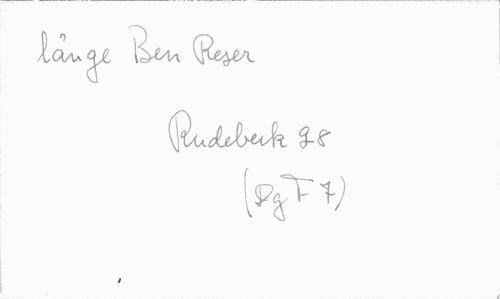 långe Ben Reser
Rudebeck 98
(Dg F 7)